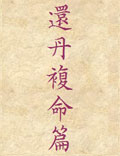 還丹複命篇